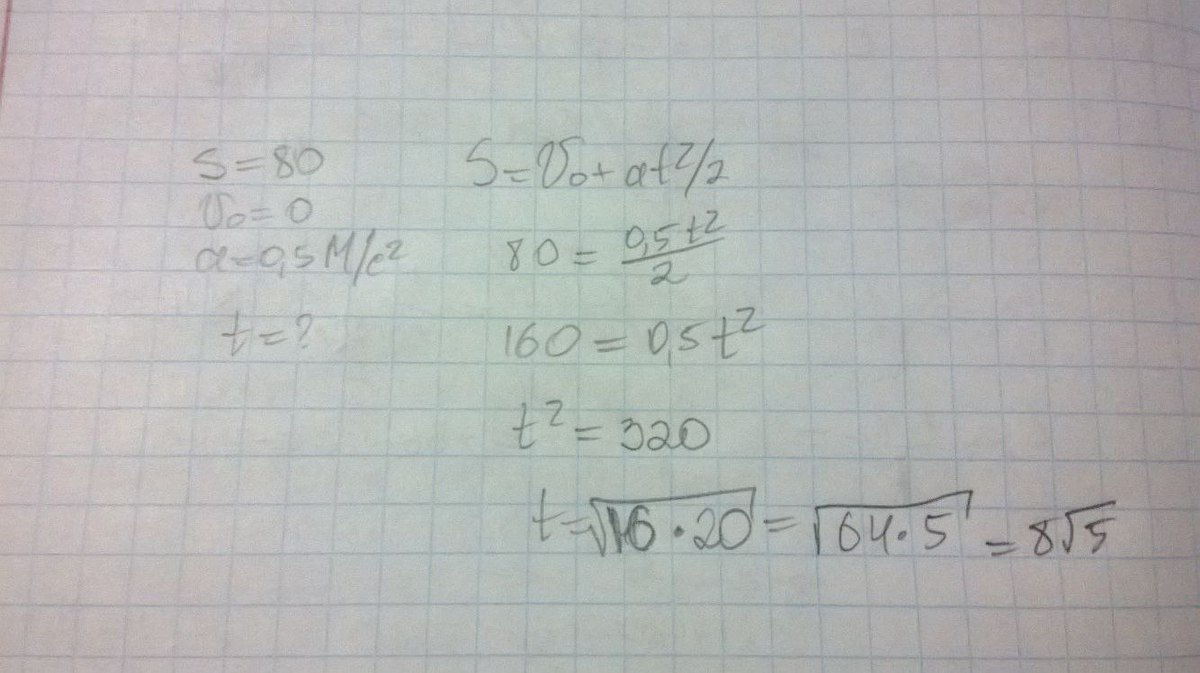 S=80
v₀=0
a=0,5 М/с²
t=?
S=v₀+at²/2
80=0,5t²/2
160=0,5t²
t²=320
t=√16·20=√64·5=8√5